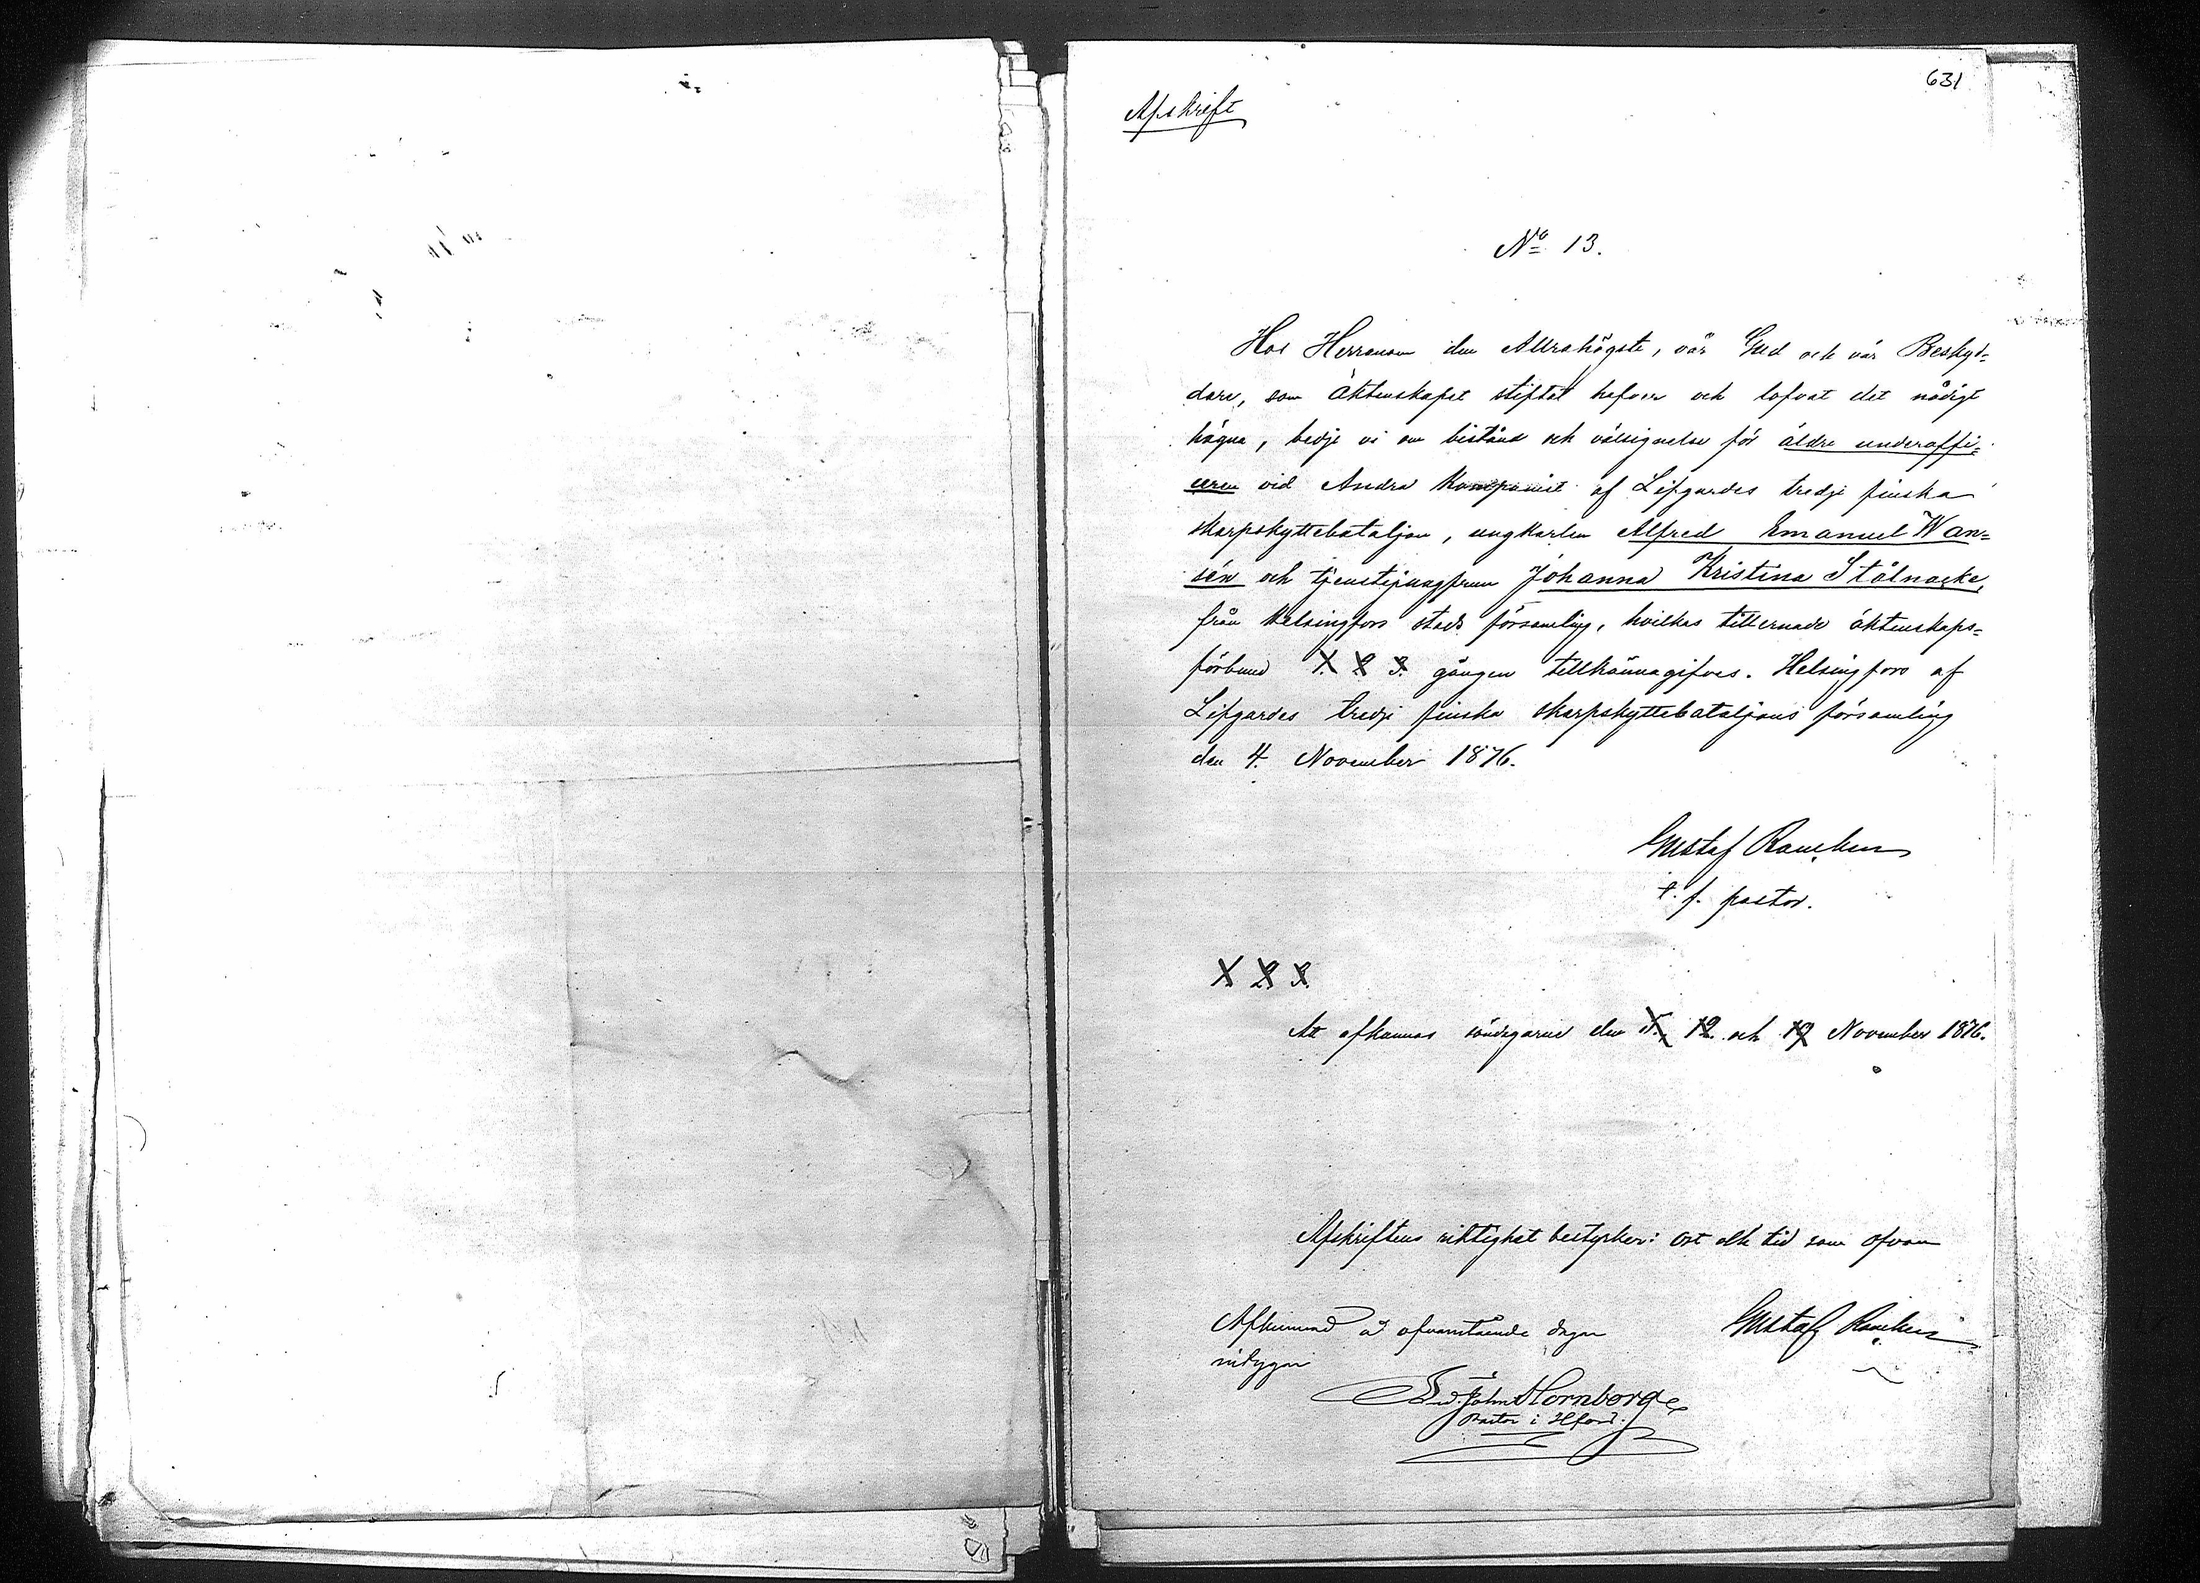 631
Afskrift
No 13.
Hos Herranom den Allrahögste, vår Gud och vår Beskyd=
dare, som äktenskapet stiftat hafver och lofvat det nådigt
hägna, bedje vi om bistånd och välsignelse för äldre underoffi=
ceren vid Andra Kompaniet af Lifgardes tredje finska
skarpskyttebataljon, ungkarlen Alfred Emanuel Wan=
sén och tjenstejungfrun Johanna Kristina Stålnacke,
från Helsingfors stads församling, hvilkas tillernade äktenskaps=
förbund 1. 2. 3. gången tillkännagifves. Helsingfors af
Lifgardes tredje finska skarpskyttebataljons församling
den 4. November 1876.
Gustaf Rancken
t. f. pastor.
1. 2. 3.
Att afkunnas söndagarne den 5., 12. och 19 November 1876.
Afskriftens riktighet bestyrker: Ort och tid som ofvan
Gustaf Rancken
Afkunnad å ofvanstående dagar
intygar
John Hornborg
Pastor i Hfors.